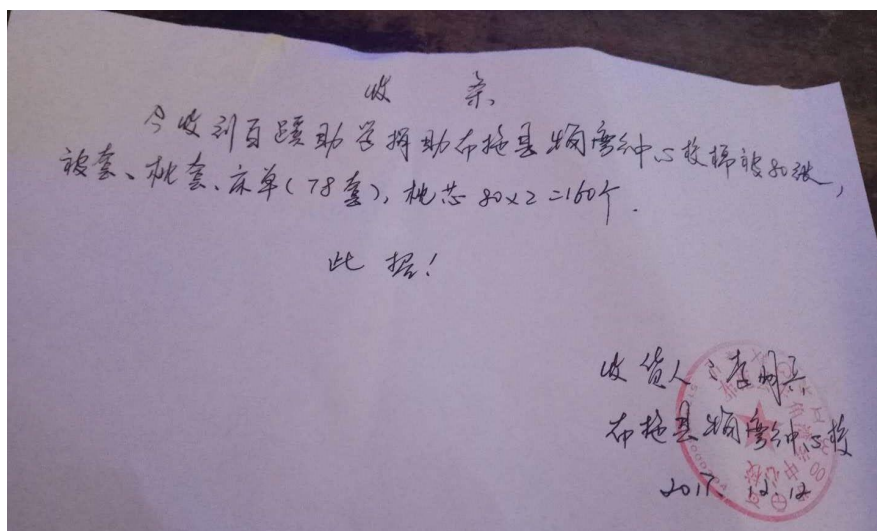 收条
今收到百蹊助学捐助布拖县牛角湾乡中心校棉被80张,
被套、枕套、床单(78套),枕芯80×2=160个.
此据!
收货人:李明兵
布拖县牛角湾乡中心校
2017.12.12